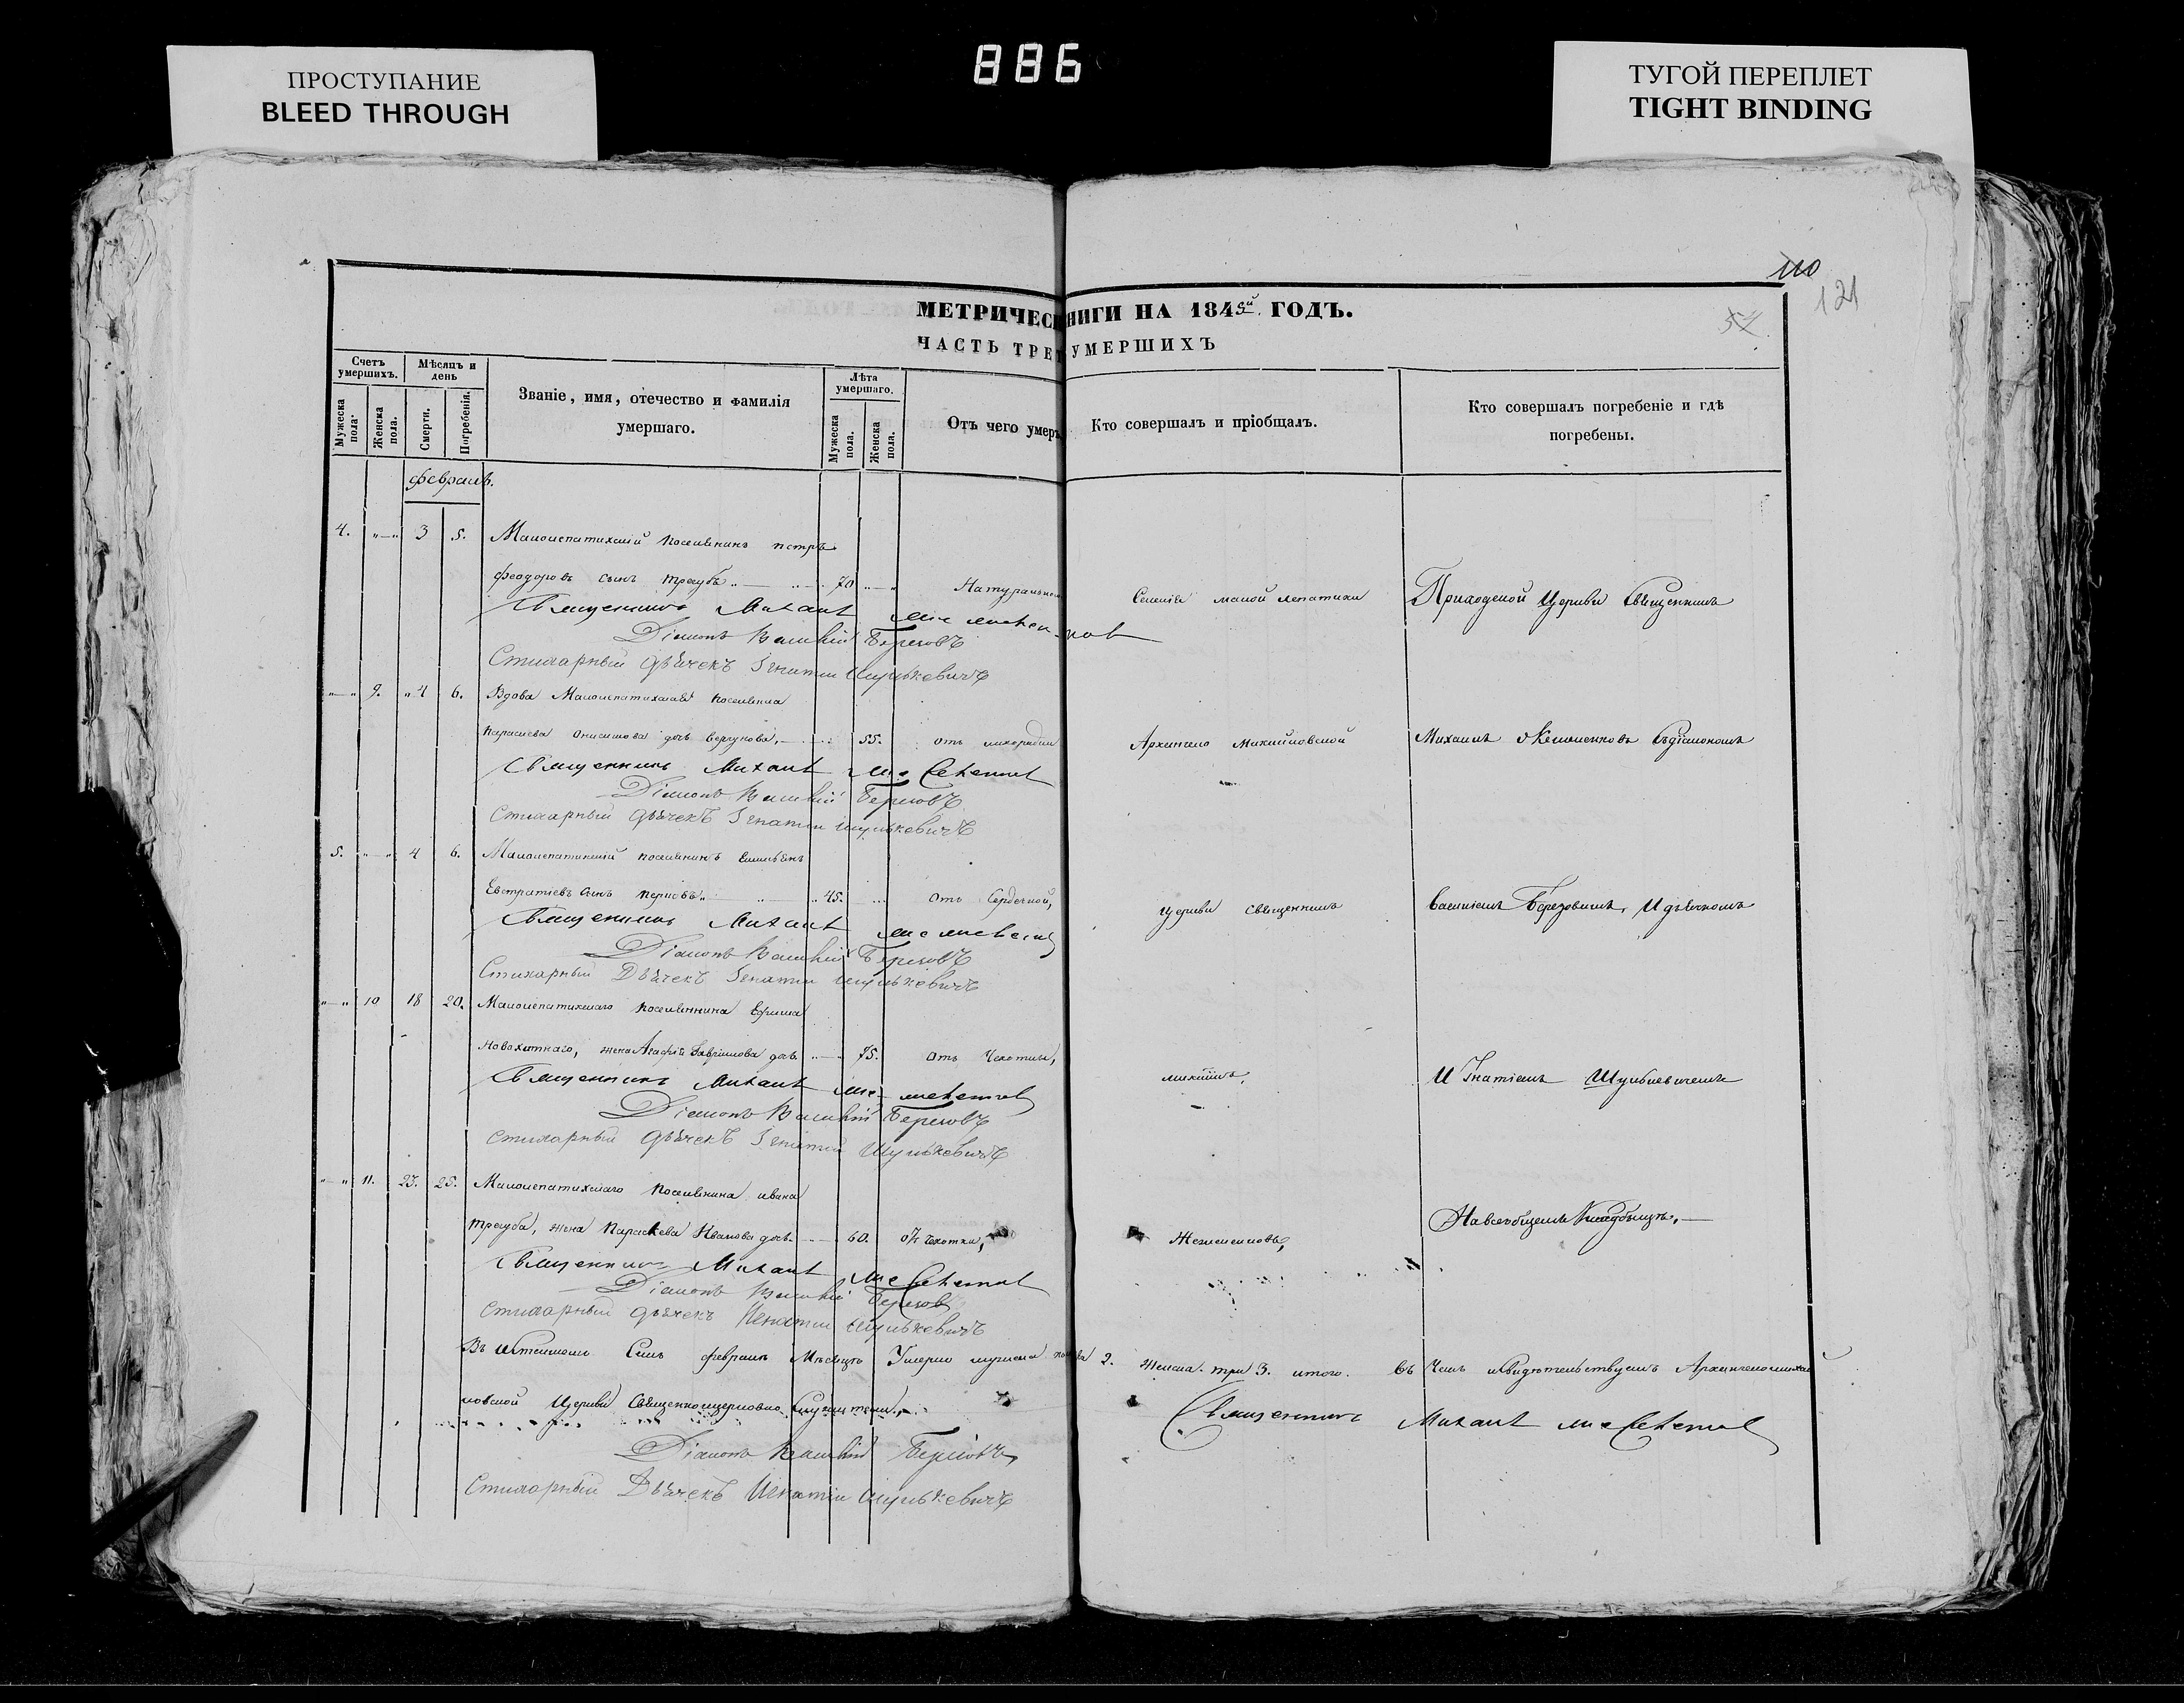 ПРОСТУПАНИЕ
BLEED THROUGH
886
ТУГОЙ ПЕРЕПЛЕТ
TIGHT BINDING
110
121
54
МЕТРИЧЕС НИГИ НА 1845й ГОДЪ.
ЧАСТЬ ТРЕ УМЕРШИХЪ
Счетъ умершихъ.
Мужеска пола
Женска пола.
Мѣсяцъ и день
Смерти.
Погребенія.
Званіе, имя, отечество и фамилія умершаго.
Лѣта умершаго.
Мужеска пола.
Женска пола.
Отъ чего умеръ
Кто совершалъ и пріобщалъ.
Кто совершалъ погребеніе и гдѣ
погребены.
февраль.
4. 3 5. Малолепатихскій поселянинъ петръ
феодоровъ сынъ трегубъ 70 Натуральною Селенія малой лепатихи Приходской Церкви Священникъ
Священникъ Михаилъ
Діаконъ Василій Березовъ
Стихарный дьячекъ Игнатій Шулькевичъ
9. 4 6. Вдова Малолепатихская поселянка
параскева онисимова дочь 55. отъ лихорадки Архангело Михайловской Михаилъ съ діакономъ
Священникъ Михаилъ
Діаконъ Василій Березовъ
Стихарный дьячекъ Игнатій Шулькевичъ
5. 4 6. Малолепатихскій поселянинъ Емельянъ
Евстратіевъ сынъ 45. отъ Сердечной, церкви священникъ Василіемъ Березовымъ, И дьячкомъ
Священникъ Михаилъ
Діаконъ Василій Березовъ
Стихарный Дьячекъ Игнатій Шулькевичъ
10 18 20. Малолепатихскаго поселянина Ефима
жена Агафія Гаврилова дочь 75. отъ Чахотки, михаилъ, Игнатіемъ Шулькевичемъ
Священникъ Михаилъ
Діаконъ Василій Березовъ
Стихарный дьячекъ Игнатій Шулькевичъ
11. 23. 25. Малолепатихскаго Поселянина ивана
трегуба, жена Параскева Иванова дочь 60. отъ чахотки, На всеобщемъ Кладбищѣ.
Священникъ Михаилъ
Діаконъ Василій Березовъ
Стихарный дьячекъ Игнатій Шулькевичъ
Въ Семъ февралѣ Мѣсяцѣ Умерло мужеска пола 2. Женска три 3. итого. Въ Чемъ свидѣтельствуемъ Архангеломихай
ловской Церкви Священноцерковнослужители
Священникъ Михаилъ
Діаконъ Василій Березовъ
Стихарный Дьячекъ Игнатій Шулькевичъ